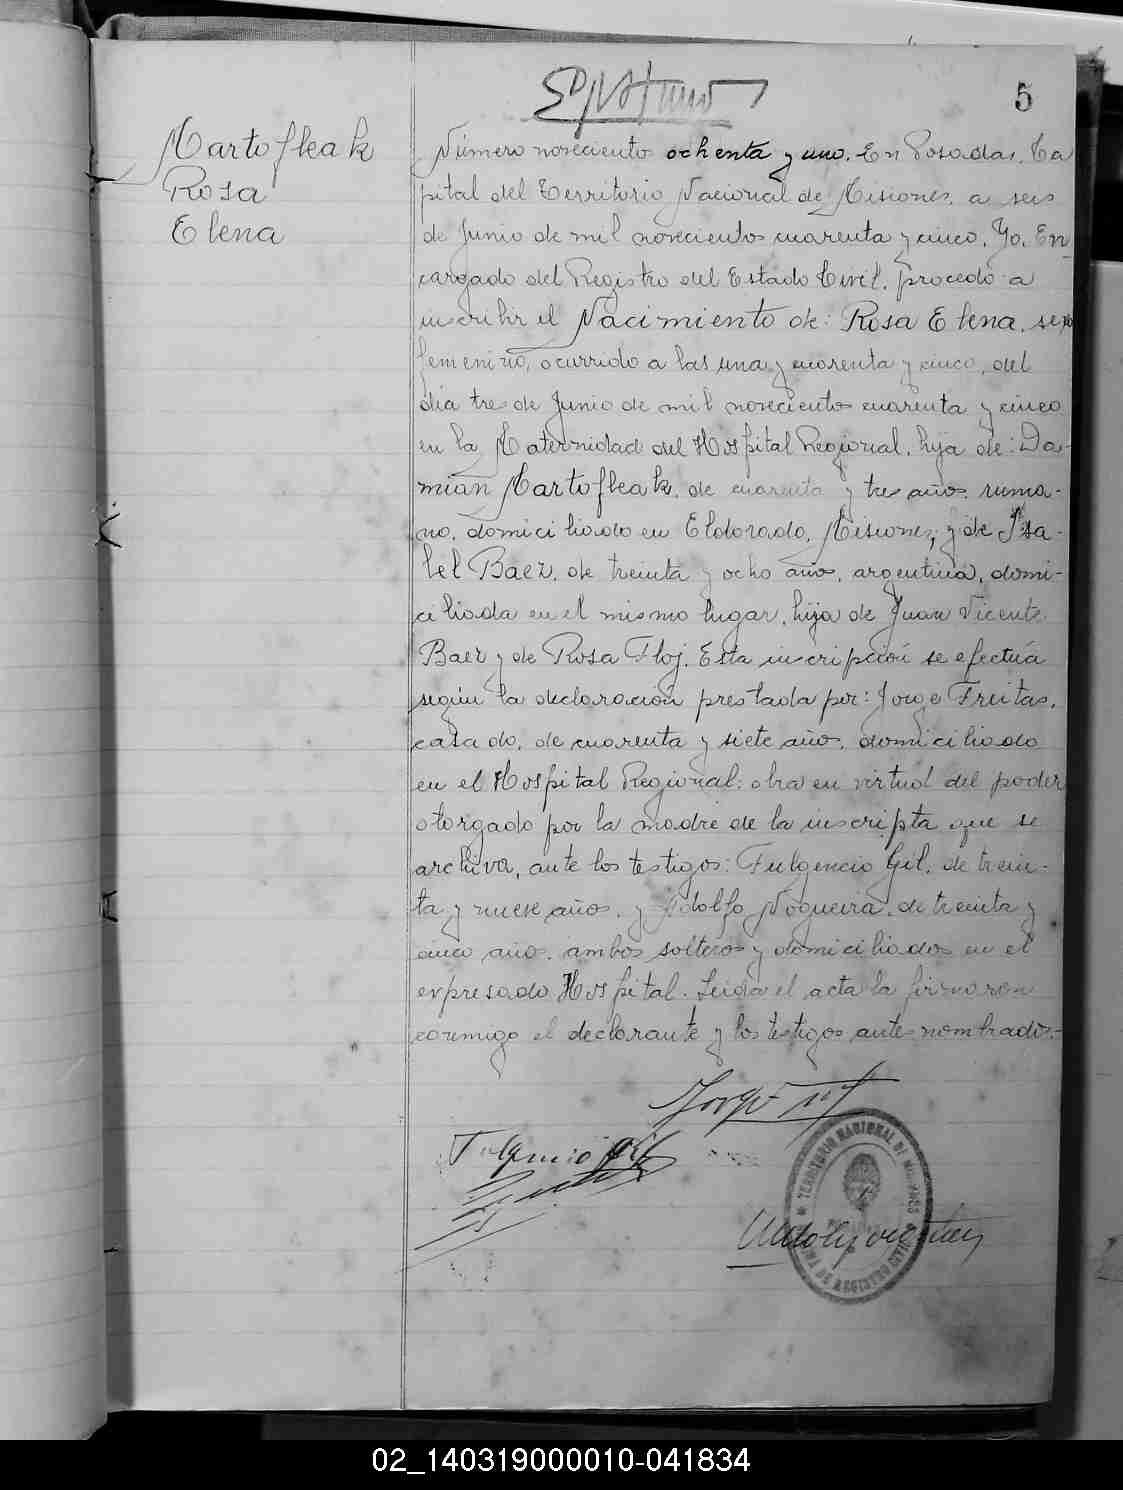 5
Martofleak
Rosa
Elena
Número novecientos ochenta y uno. En Posadas, Ca
pital del Territorio Nacional de Misiones, a seis
de Junio de mil novecientos cuarenta y cinco, Yo, En
cargado del Registro del Estado Civil, procedo a
inscribir el Nacimiento de: Rosa Elena, sexo
femenino, ocurrido a las una y cuarenta y cinco, del
día tres de Junio de mil novecientos cuarenta y cinco
en la Maternidad del Hospital Regional, hija de: Da-
mian Martofleak, de cuarenta y tres años, ruma-
no, domiciliado en Eldorado, Misiones, y de Isa-
bel Baez, de treinta y ocho años, argentina, domi-
ciliada en el mismo lugar, hija de Juan Vicente
Baez y de Rosa Floj. Esta inscripción se efectúa
según la declaración prestada por: Jorge Freitas,
casado, de cuarenta y siete años, domiciliado
en el Hospital Regional: obra en virtud del poder
otorgado por la madre de la inscripta que se
archiva, ante los testigos: Fulgencio Gil, de trein-
ta y nueve años, y Adolfo Nogueira, de treinta y
cinco años, ambos solteros y domiciliados en el
expresado Hospital. Leida el acta la firmaron
conmigo el declarante y los testigos antes nombrados.-
Jorge
Fulgencio Gil
TERRITORIO NACIONAL DE MISIONES
DE REGISTRO CIVIL
02_140319000010-041834